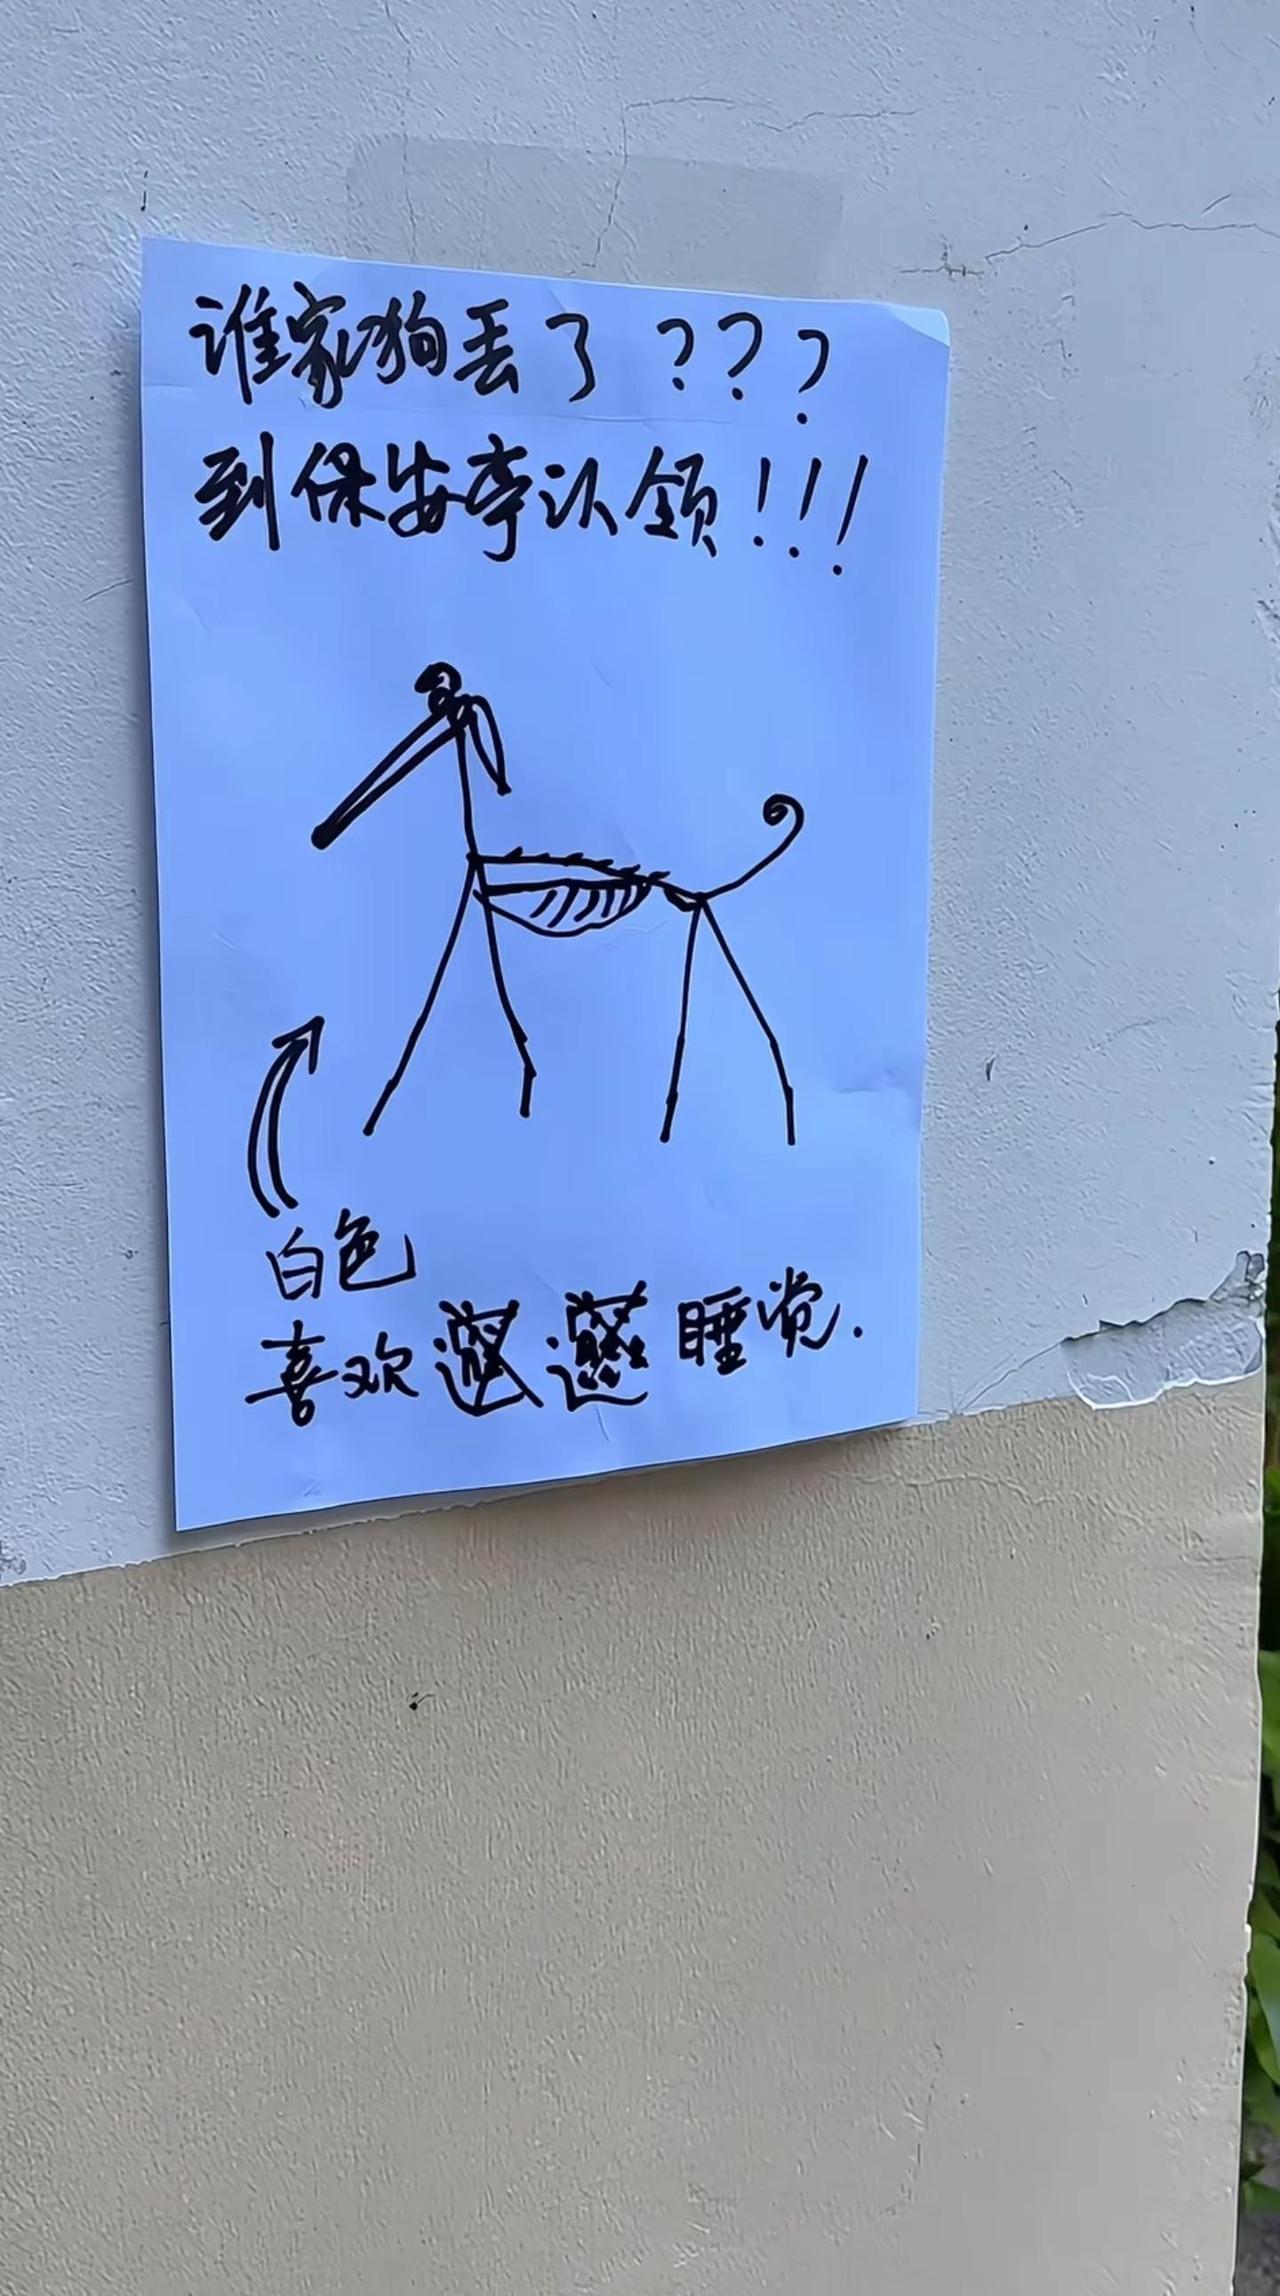 谁家狗丢了???
到保安亭认领!!!
白色
喜欢睡觉.